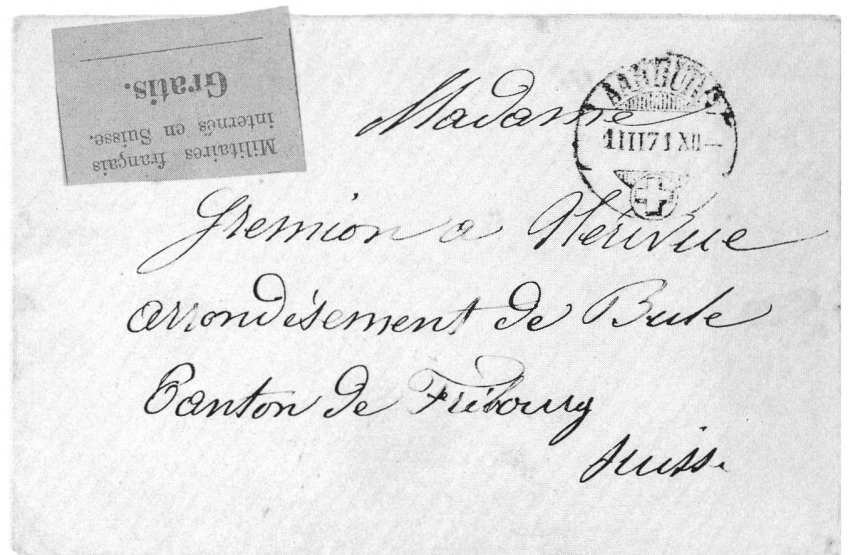 Militaires français
internés en Suisse.
Gratis.
AARBURG
1 III 71 XII–
Madame
Gremion a Nérivue
arrondisement de Bule
Canton de Fribourg
Suisse